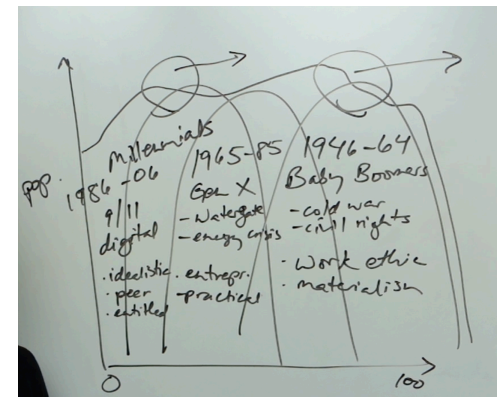 pop.
Millennials
1986-06
9/11
digital
• idealistic
• peer
• entitled
1965-85
Gen X
- Watergate
- energy crisis
• entrepr.
- practical
1946-64
Baby Boomers
- cold war
- civil rights
• work ethic
• materialism
0
100